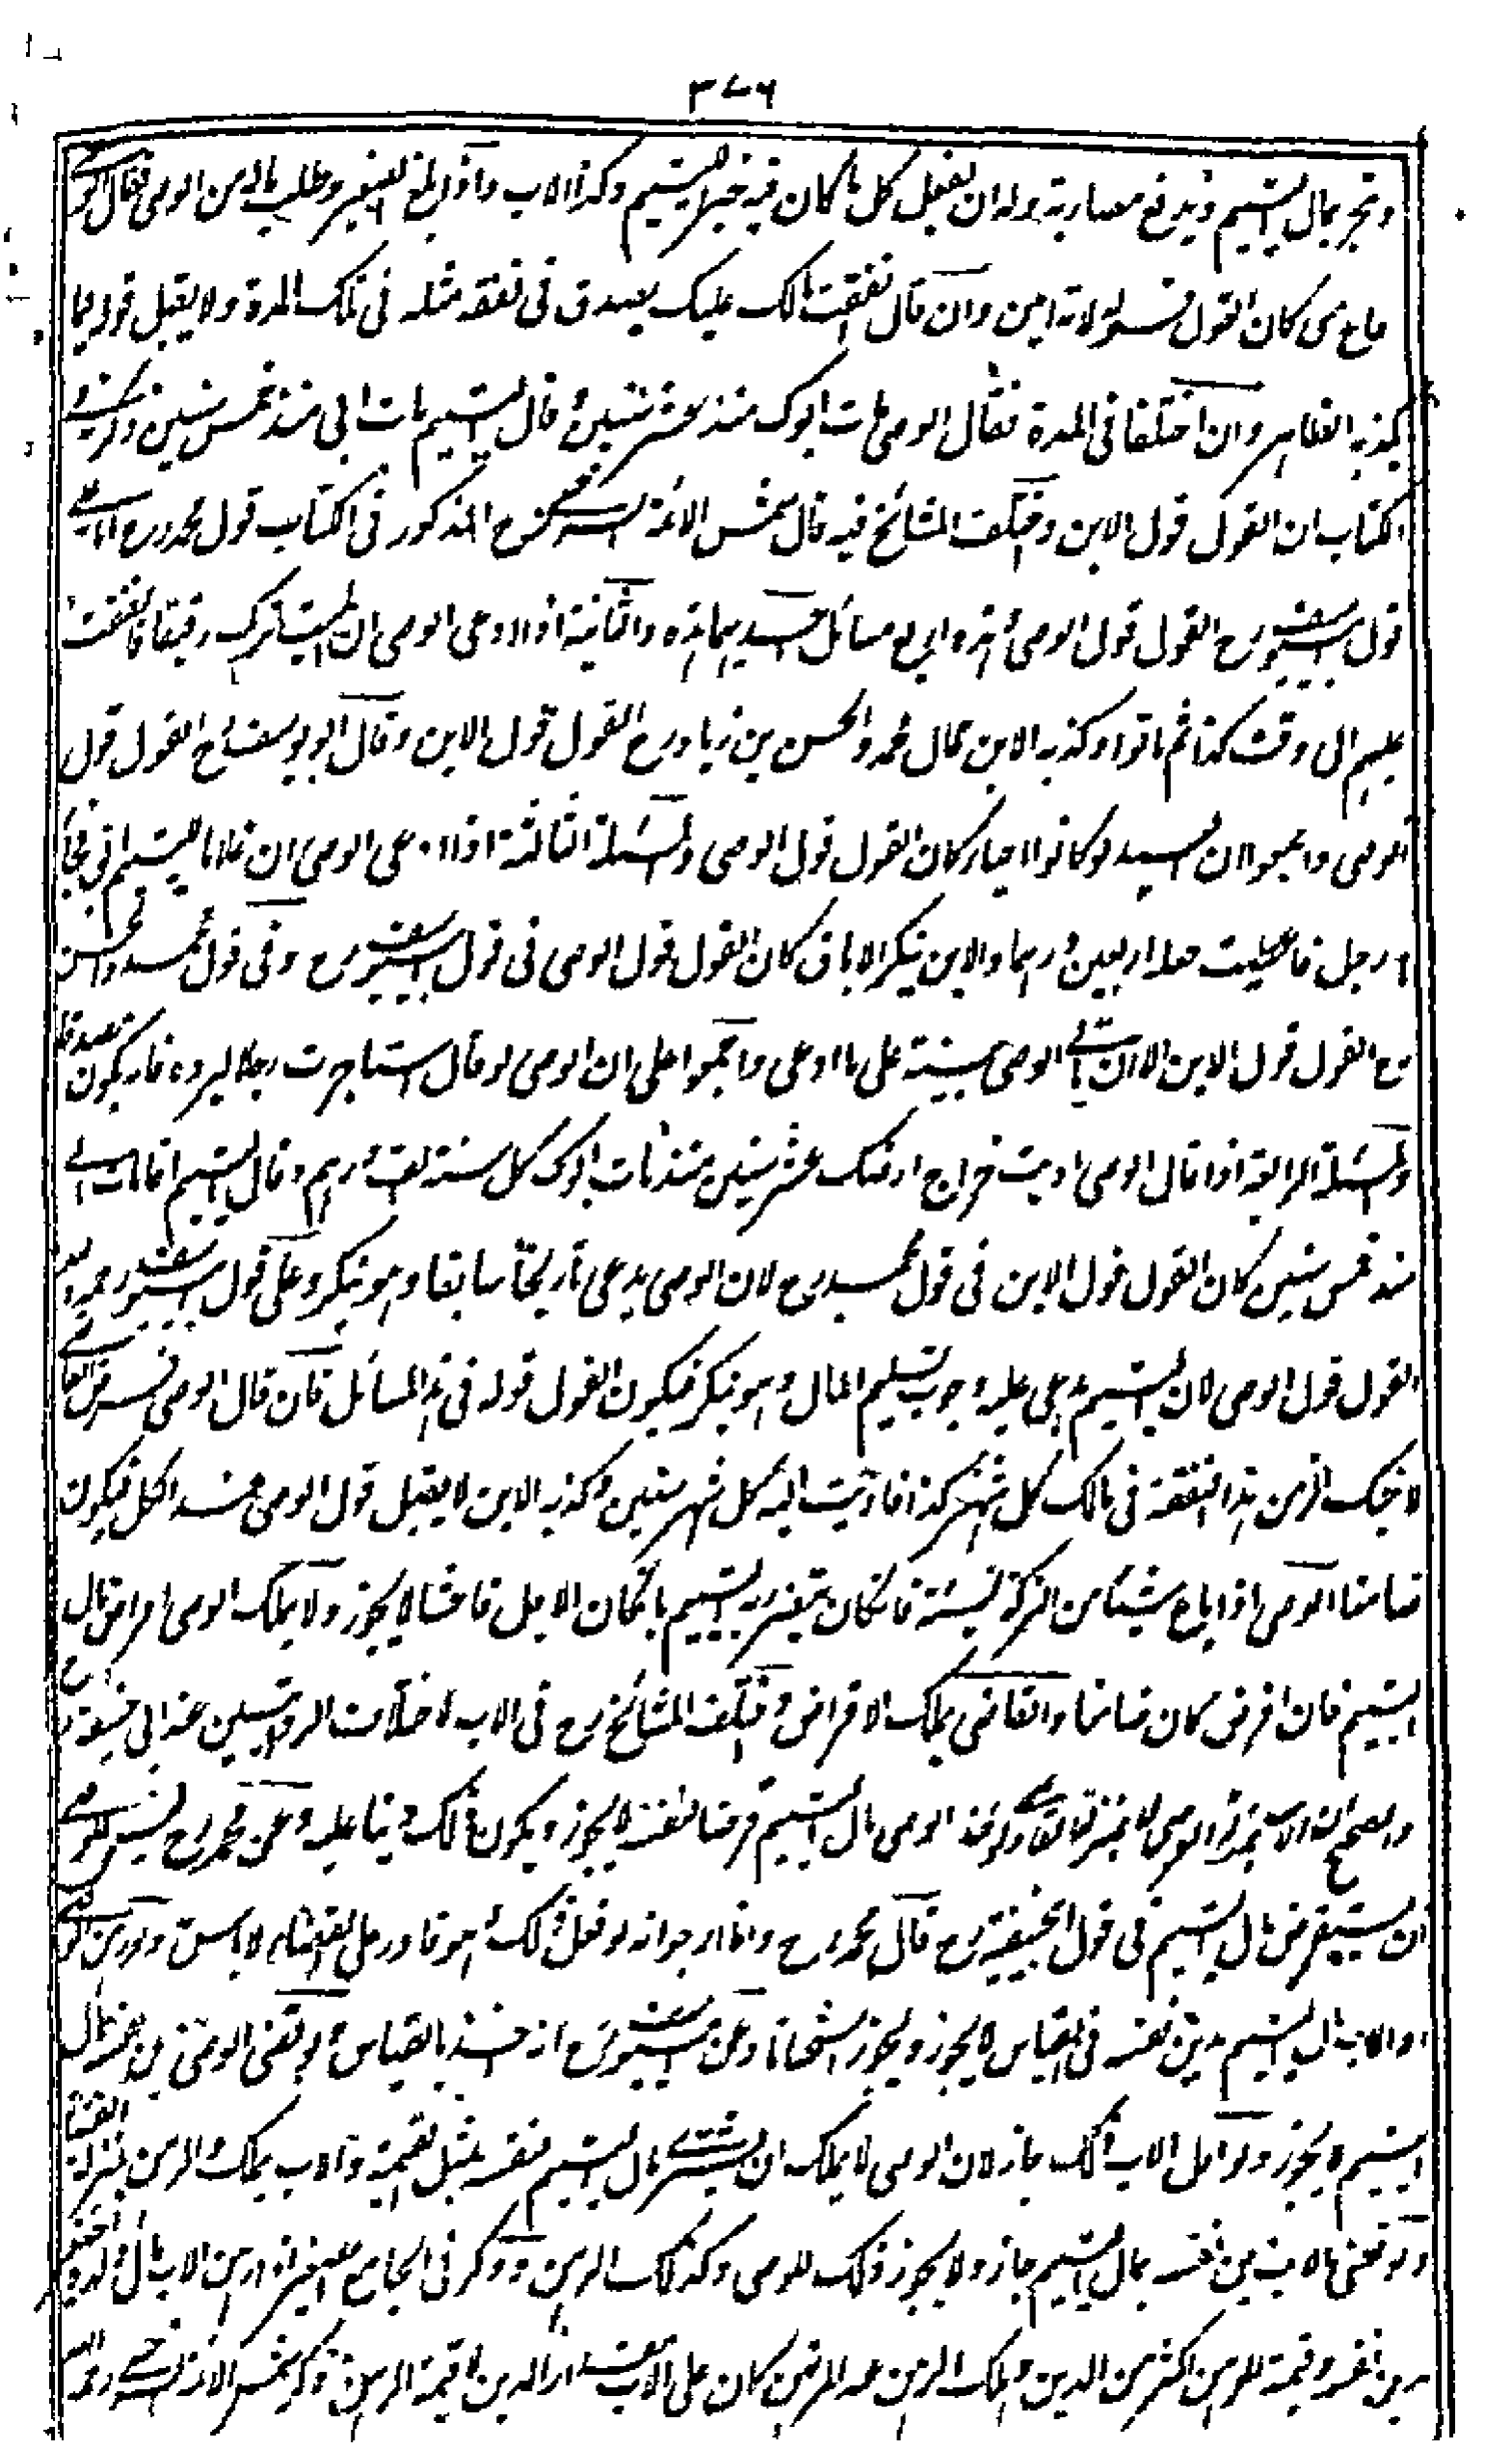 ٣٧٦
و تجر بمال اليتيم و يدفع مضاربة وله ان يفعل كل ما كان فيه خير لليتيم وكذا الاب واذا بلغ الصغير وطلب ماله من الوصي فقال الوصي
ضاع مني كان القول قوله لانه امين وان قال انفقت مالك عليك يصدق في نفقة مثله في تلك المدة ولا يقبل قوله فيما
يكذبه الظاهر وان اختلفا في المدة فقال الوصي مات ابوك منذ عشر سنين وقال اليتيم مات ابي منذ خمس سنين ذكر في
الكتاب ان القول قول الابن واختلف المشائخ فيه قال شمس الائمة السرخسي رح المذكور في الكتاب قول محمد رح اما على
قول ابي يوسف رح القول قول الوصي وهذه اربع مسائل احديها هذه والثانية اذا ادعى الوصي ان الميت ترك رقيقا فانفقت
عليهم الى وقت كذا ثم ماتوا وكذبه الابن قال محمد والحسن بن زياد رح القول قول الابن وقال ابو يوسف رح القول قول
الوصي واجمعوا ان العبيد لو كانوا احياء كان القول قول الوصي والمسئلة الثالثة اذا ادعى الوصي ان غلاما لليتيم ابق فجاء
به رجل فاعطيت جعله اربعين درهما والابن ينكر الاباق كان القول قول الوصي في قول ابي يوسف رح وفي قول محمد والحسن
رح القول قول الابن الا ان ياتي الوصي ببينة على ما ادعى واجمعوا على ان الوصي لو قال استاجرت رجلا ليرده فانه يكون مصدقا
والمسئلة الرابعة اذا قال الوصي اديت خراج ارضك عشر سنين منذ مات ابوك كل سنة الف درهم وقال اليتيم انما مات ابي
منذ خمس سنين كان القول قول الابن في قول محمد رح لان الوصي يدعي تاريخا سابقا وهو ينكر وعلى قول ابي يوسف رحمه الله
القول قول الوصي لان اليتيم يدعي عليه وجوب تسليم المال وهو ينكر فيكون القول قوله في هذه المسائل فان قال الوصي فرض القاضي
لاخيك الزمن هذا النفقة في مالك كل شهر كذا فاديت اليه كل شهر منذ سنين وكذبه الابن لا يقبل قول الوصي عند الكل فيكون
ضامنا الوصي اذا باع شيئا من التركة نسيئة فان كان يتضرر به اليتيم بان كان الاجل فاحشا لا يجوز ولا يملك الوصي اقراض مال
اليتيم فان اقرض كان ضامنا والقاضي يملك الاقراض واختلف المشائخ رح في الاب لاختلاف الروايتين عن ابي حنيفة رح
والصحيح ان الاب بمنزلة الوصي لا بمنزلة القاضي ولو اخذ الوصي مال اليتيم قرضا لنفسه لا يجوز ويكون ذلك دينا عليه وعن محمد رح ليس للوصي
ان يستقرض مال اليتيم في قول ابي حنيفة رح قال محمد رح وانا ارجو انه لو فعل ذلك وهو قادر على القضاء لا باس به ولو رهن الوصي
او الاب مال اليتيم بدين نفسه في القياس لا يجوز ويجوز استحسانا وعن ابي يوسف رح انه اخذ بالقياس ولو قضى الوصي دين نفسه بمال
اليتيم لا يجوز ولو فعل الاب ذلك جاز لان الوصي لا يملك ان يشتري مال اليتيم لنفسه بمثل القيمة والاب يملك والرهن بمنزلة القضاء
ولو قضى الاب دين نفسه بمال اليتيم جاز ولا يجوز ذلك للوصي وكذلك الرهن وذكر في الجامع الصغير اذا رهن الاب مال ولده الصغير
بدين نفسه وقيمة الرهن اكثر من الدين وهلك الرهن عند المرتهن كان على الاب مقدار الدين لا قيمة الرهن وذكر شمس الائمة السرخسي رحمه الله